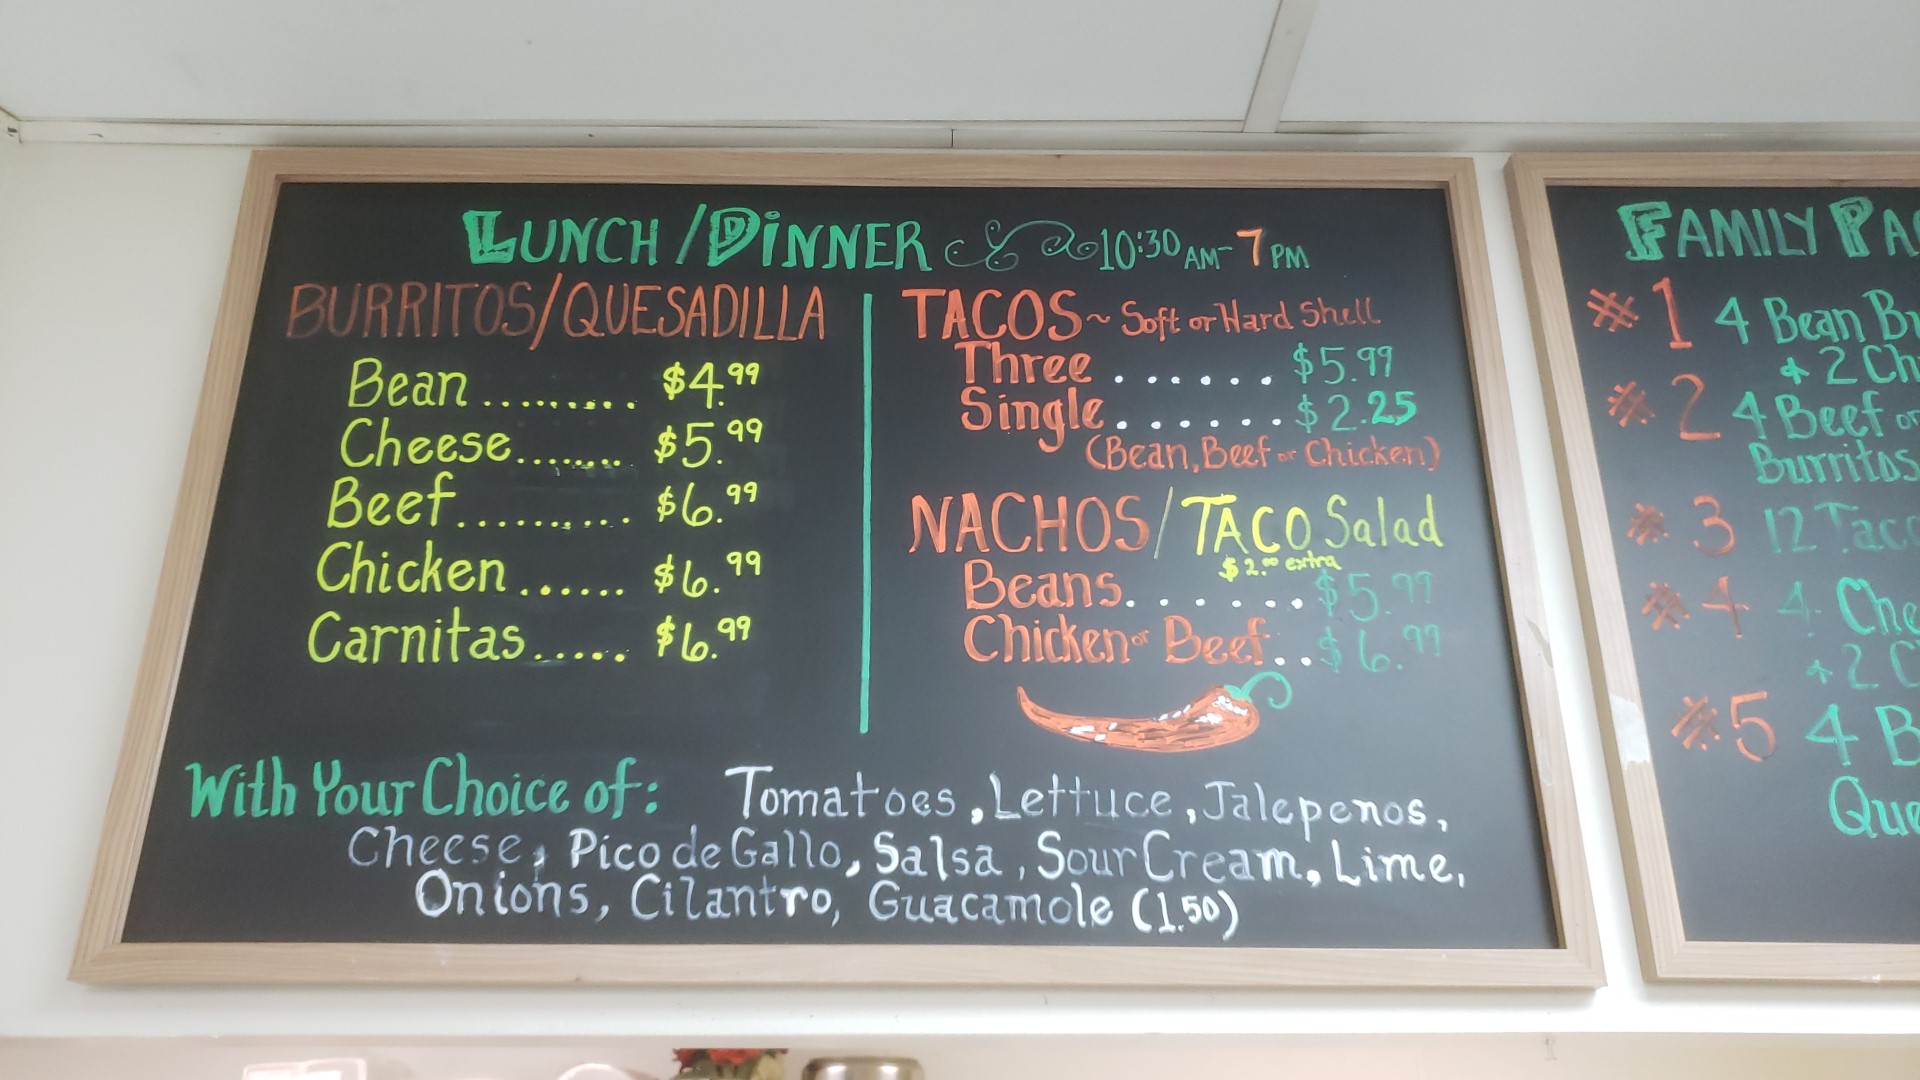 LUNCH/DINNER 10:30 AM-7 PM
BURRITOS/QUESADILLA
Bean ......... $4.99
Cheese........ $5.99
Beef.......... $6.99
Chicken ...... $6.99
Carnitas..... $6.99
TACOS~ Soft or Hard Shell
Three ...... $5.99
Single...... $2.25
(Bean, Beef or Chicken)
NACHOS/TACO Salad
$2.00 extra
Beans. ...... $5.99
Chicken or Beef... $6.99
With Your Choice of: Tomatoes, Lettuce, Jalepenos,
Cheese, Pico de Gallo, Salsa, Sour Cream, Lime,
Onions, Cilantro, Guacamole (1.50)
FAMILY PA
#1 4 Bean Bu
+ 2 Ch
#2 4 Beef or
Burritos
#3 12 Taco
#4 4 Che
+ 2 C
#5 4 B
Que